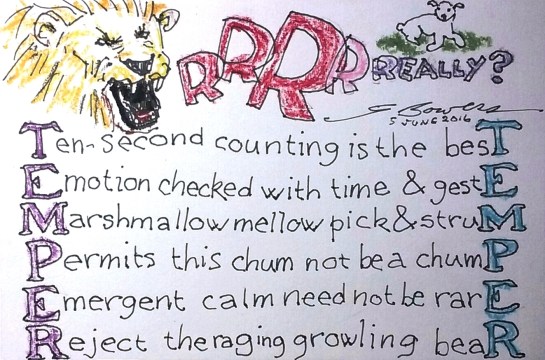 RRRR REALLY?
S Bowers
5 JUNE 2016
Ten-second counting is the besT
Emotion checked with time & gestE
Marshmallow mellow pick & struM
Permits this chum not be a chumP
Emergent calm need not be rarE
Reject the raging growling beaR